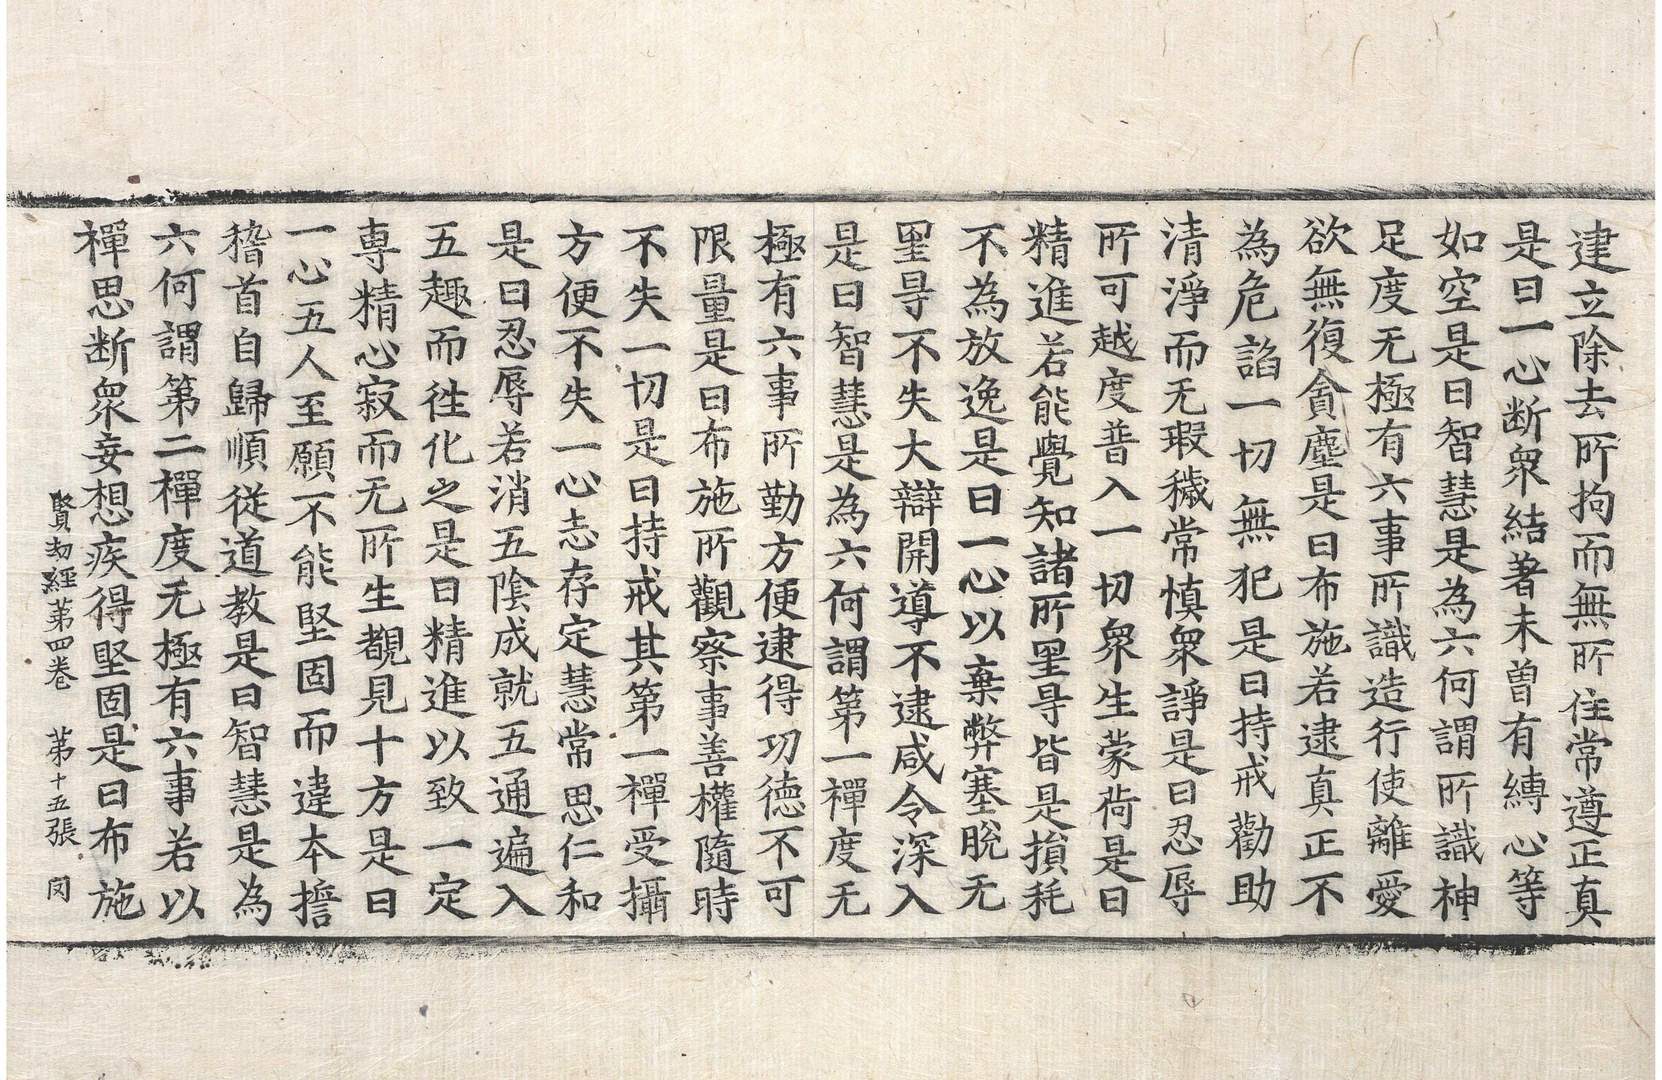 建立除去所拘而無所住常遵正真
是曰一心断衆結著未曽有縛心等
如空是曰智慧是為六何謂所識神
足度无極有六事所識造行使離愛
欲無復貪塵是曰布施若逮真正不
為危諂一切無犯是曰持戒勸助
清淨而无瑕穢常慎衆諍是曰忍辱
所可越度普入一切衆生蒙荷是曰
精進若能覺知諸所罣㝵皆是損耗
不為放逸是曰一心以棄弊塞脫无
罣㝵不失大辯開導不逮咸令深入
是曰智慧是為六何謂第一禪度无
極有六事所勤方便逮得功德不可
限量是曰布施所觀察事善權隨時
不失一切是曰持戒其第一禪受攝
方便不失一心志存定慧常思仁和
是曰忍辱若消五陰成就五通遍入
五趣而徃化之是曰精進以致一定
専精心寂而无所生覩見十方是曰
一心五人至願不能堅固而違本擔
稽首自歸順従道教是曰智慧是為
六何謂第二禪度无極有六事若以
禪思断衆妄想疾得堅固是曰布施
賢劫經第四卷 第十五張 㓁